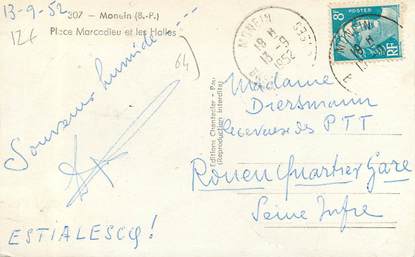 13-9-52
307 - Monein (B.-P.)
12f
Place Marcadieu et les Halles
64
Souvenir humide ----
ESTIALESCQ!
Editions Chantecler - Pau
(Reproduction interdite)
MONEIN
18 H
13 -9
1952
8F
Madame
Diersmann
Receveuse des PTT
Rouen Quartier Gare
Seine Infre